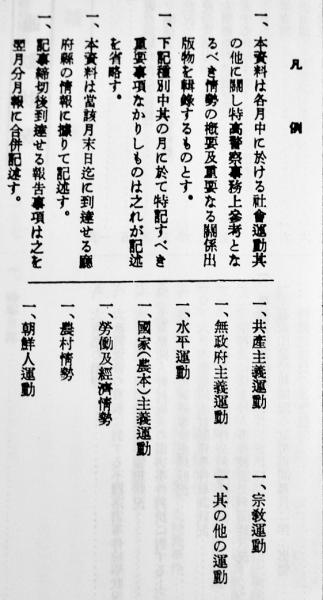 凡例
一、本資料は各月中に於ける社會運動其
の他に關し特高警察事務上參考とな
るべき情勢の概要及重要なる關係出
版物を輯錄するものとす。
一、下記種別中其の月に於て特記すべき
重要事項なかりしものは之れが記述
を省略す。
一、本資料は當該月末日迄に到達せる廳
府縣の情報に據りて記述す。
一、記事締切後到達せる報告事項は之を
翌月分月報に合併記述す。
一、共產主義運動
一、無政府主義運動
一、水平運動
一、國家(農本)主義運動
一、勞働及經濟情勢
一、農村情勢
一、朝鮮人運動
一、宗敎運動
一、其の他の運動